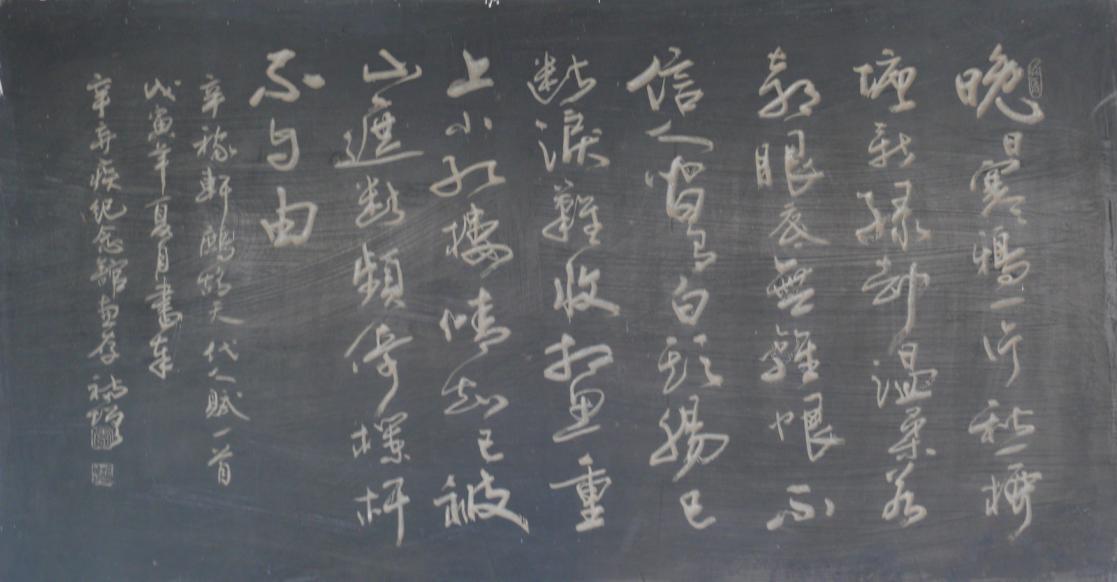 晚日寒鴉一片愁柳
塘新綠却温柔若
教眼底無離恨不
信人間有白頭腸已
斷淚難收相思重
上小紅樓情知已被
山遮斷頻倚欄杆
不自由
辛稼軒鷓鴣天代人賦一首
戊寅年夏月書奉
辛弃疾紀念館惠存